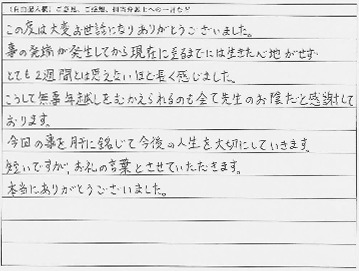 【自由記入欄】ご意見、ご感想、担当弁護士への一言など
この度は大変お世話になりありがとうございました。
事の発端が発生してから現在に至るまでには生きた心地がせず
とても2週間とは思えないほど長く感じました。
こうして無事年越しをむかえられるのも全て先生のお陰だと感謝して
おります。
今回の事を肝に銘じて今後の人生を大切にしていきます。
短いですが、お礼の言葉とさせていただきます。
本当にありがとうございました。